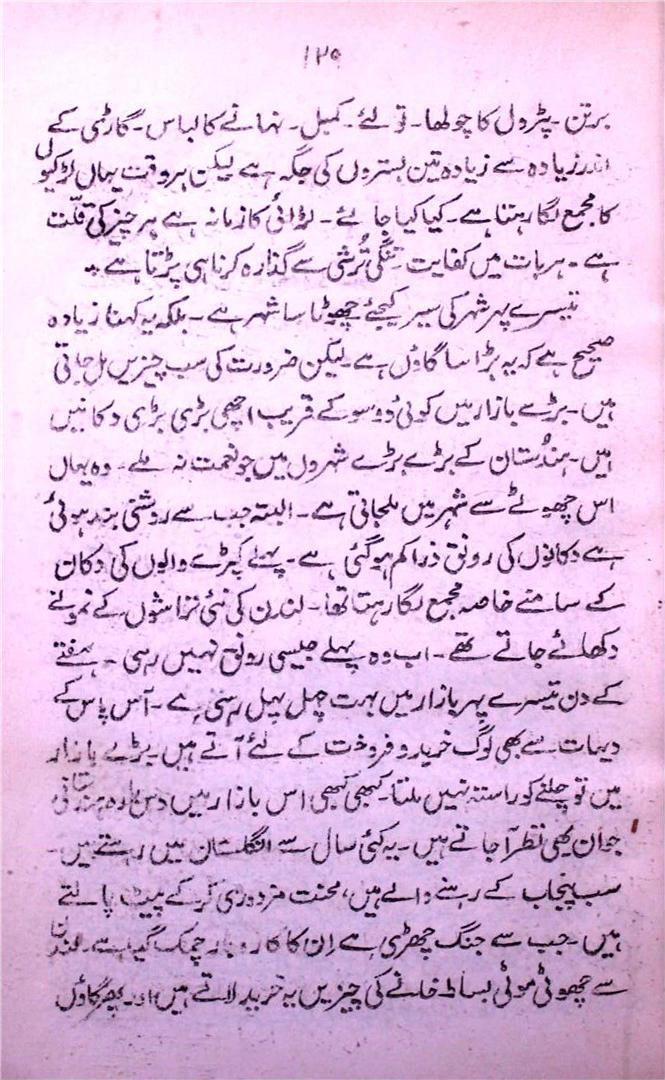 ۱۲۹
برتن - پٹرول کا چولھا - تولئے - کمبل - نہانے کا لباس - گاڑی کے
اندر زیادہ سے زیادہ تین بستروں کی جگہ ہے لیکن ہر وقت یہاں لڑکیوں
کا مجمع لگا رہتا ہے - کیا کیا جائے - لڑائی کا زمانہ ہے ہر چیز کی قلّت
ہے - ہر بات میں کفایت - تنگی تُرشی سے گذارہ کرنا ہی پڑتا ہے -
تیسرے پہر شہر کی سیر کیجئے چھوٹا سا شہر ہے - بلکہ یہ کہنا زیادہ
صحیح ہے کہ یہ بڑا سا گاؤں ہے - لیکن ضرورت کی سب چیزیں مل جاتی
ہیں - بڑے بازار میں کوئی دو سو کے قریب اچھی بڑی بڑی دکانیں
ہیں - ہندُستان کے بڑے بڑے شہروں میں جو نعمت نہ ملے - وہ یہاں
اس چھوٹے سے شہر میں ملجاتی ہے - البتہ جب سے روشنی بند ہوئی
ہے دکانوں کی رونق ذرا کم ہو گئی ہے - پہلے کپڑے والوں کی دکان
کے سامنے خاصہ مجمع لگا رہتا تھا - لندن کی نئی تراشوں کے نمونے
دکھائے جاتے تھے - اب وہ پہلے جیسی رونق نہیں رہی - ہفتے
کے دن تیسرے پہر بازار میں بہت چہل پہل رہتی ہے - آس پاس کے
دیہات سے بھی لوگ خرید و فروخت کے لئے آتے ہیں - بڑے بازار
میں تو چلنے کو راستہ نہیں ملتا - کبھی کبھی اس بازار میں دس بارہ ہندستانی
جوان بھی نظر آ جاتے ہیں - یہ کئی سال سے انگلستان میں رہتے ہیں -
سب پنجاب کے رہنے والے ہیں، محنت مزدوری کر کے پیٹ پالتے
ہیں - جب سے جنگ چھڑی ہے اِن کا کاروبار چمک گیا ہے - لندن
سے چھوٹی موٹی بساط خانے کی چیزیں یہ خرید لاتے ہیں اور پھر گاؤں